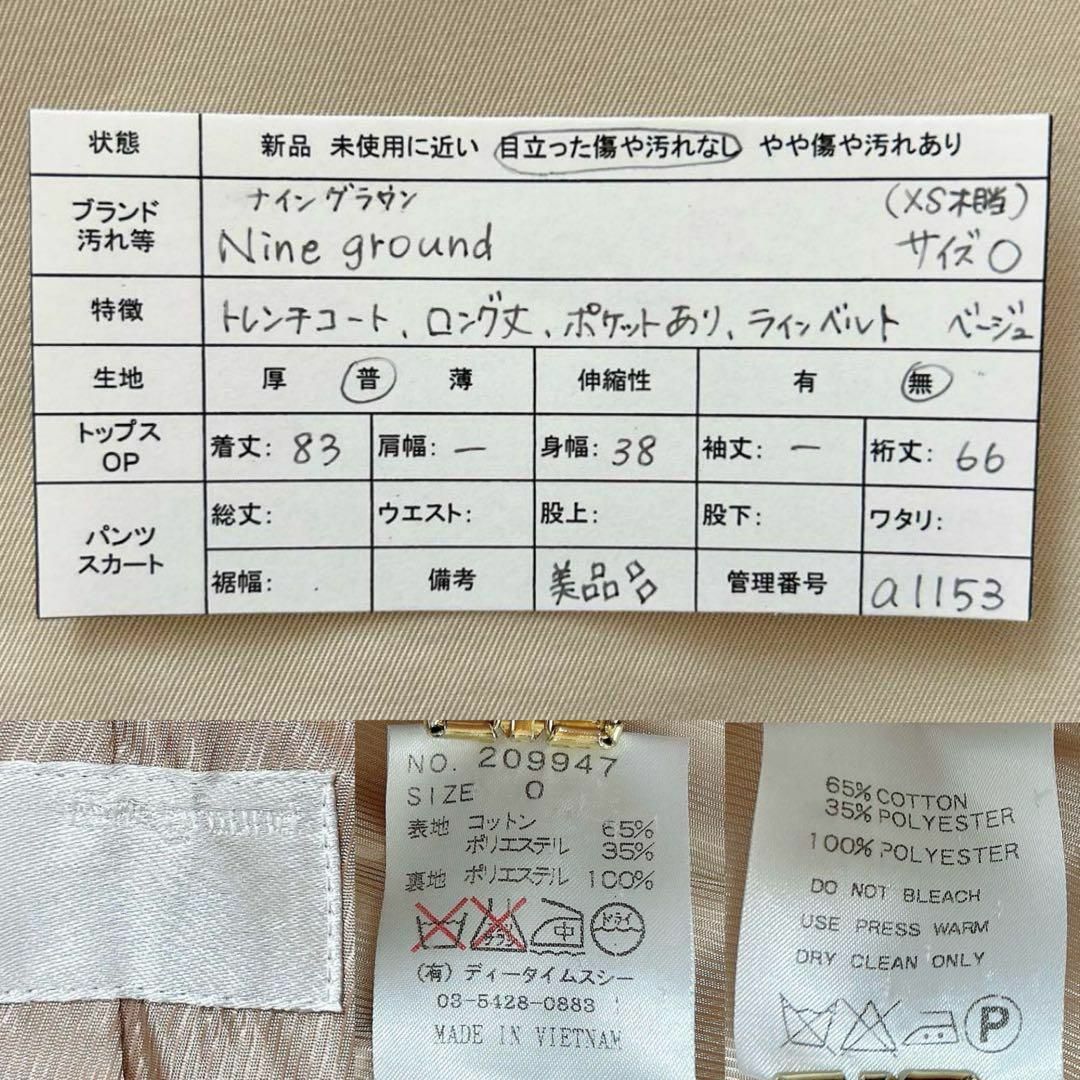 状態 新品 未使用に近い 目立った傷や汚れなし やや傷や汚れあり
ブランド 汚れ等
ナイングラウン (XS相当)
Nine ground サイズ0
特徴 トレンチコート、ロング丈、ポケットあり、ラインベルト ベージュ
生地 厚 普 薄 伸縮性 有 無
トップス OP
着丈: 83 肩幅: ー 身幅: 38 袖丈: ー 裄丈: 66
パンツ スカート
総丈: ウエスト: 股上: 股下: ワタリ:
裾幅: 備考 美品 管理番号 a1153
NO. 209947
SIZE 0
表地 コットン 65%
ポリエステル 35%
裏地 ポリエステル 100%
中 ドライ
(有) ディータイムスシー
03-5428-0883
MADE IN VIETNAM
65% COTTON
35% POLYESTER
100% POLYESTER
DO NOT BLEACH
USE PRESS WARM
DRY CLEAN ONLY
P